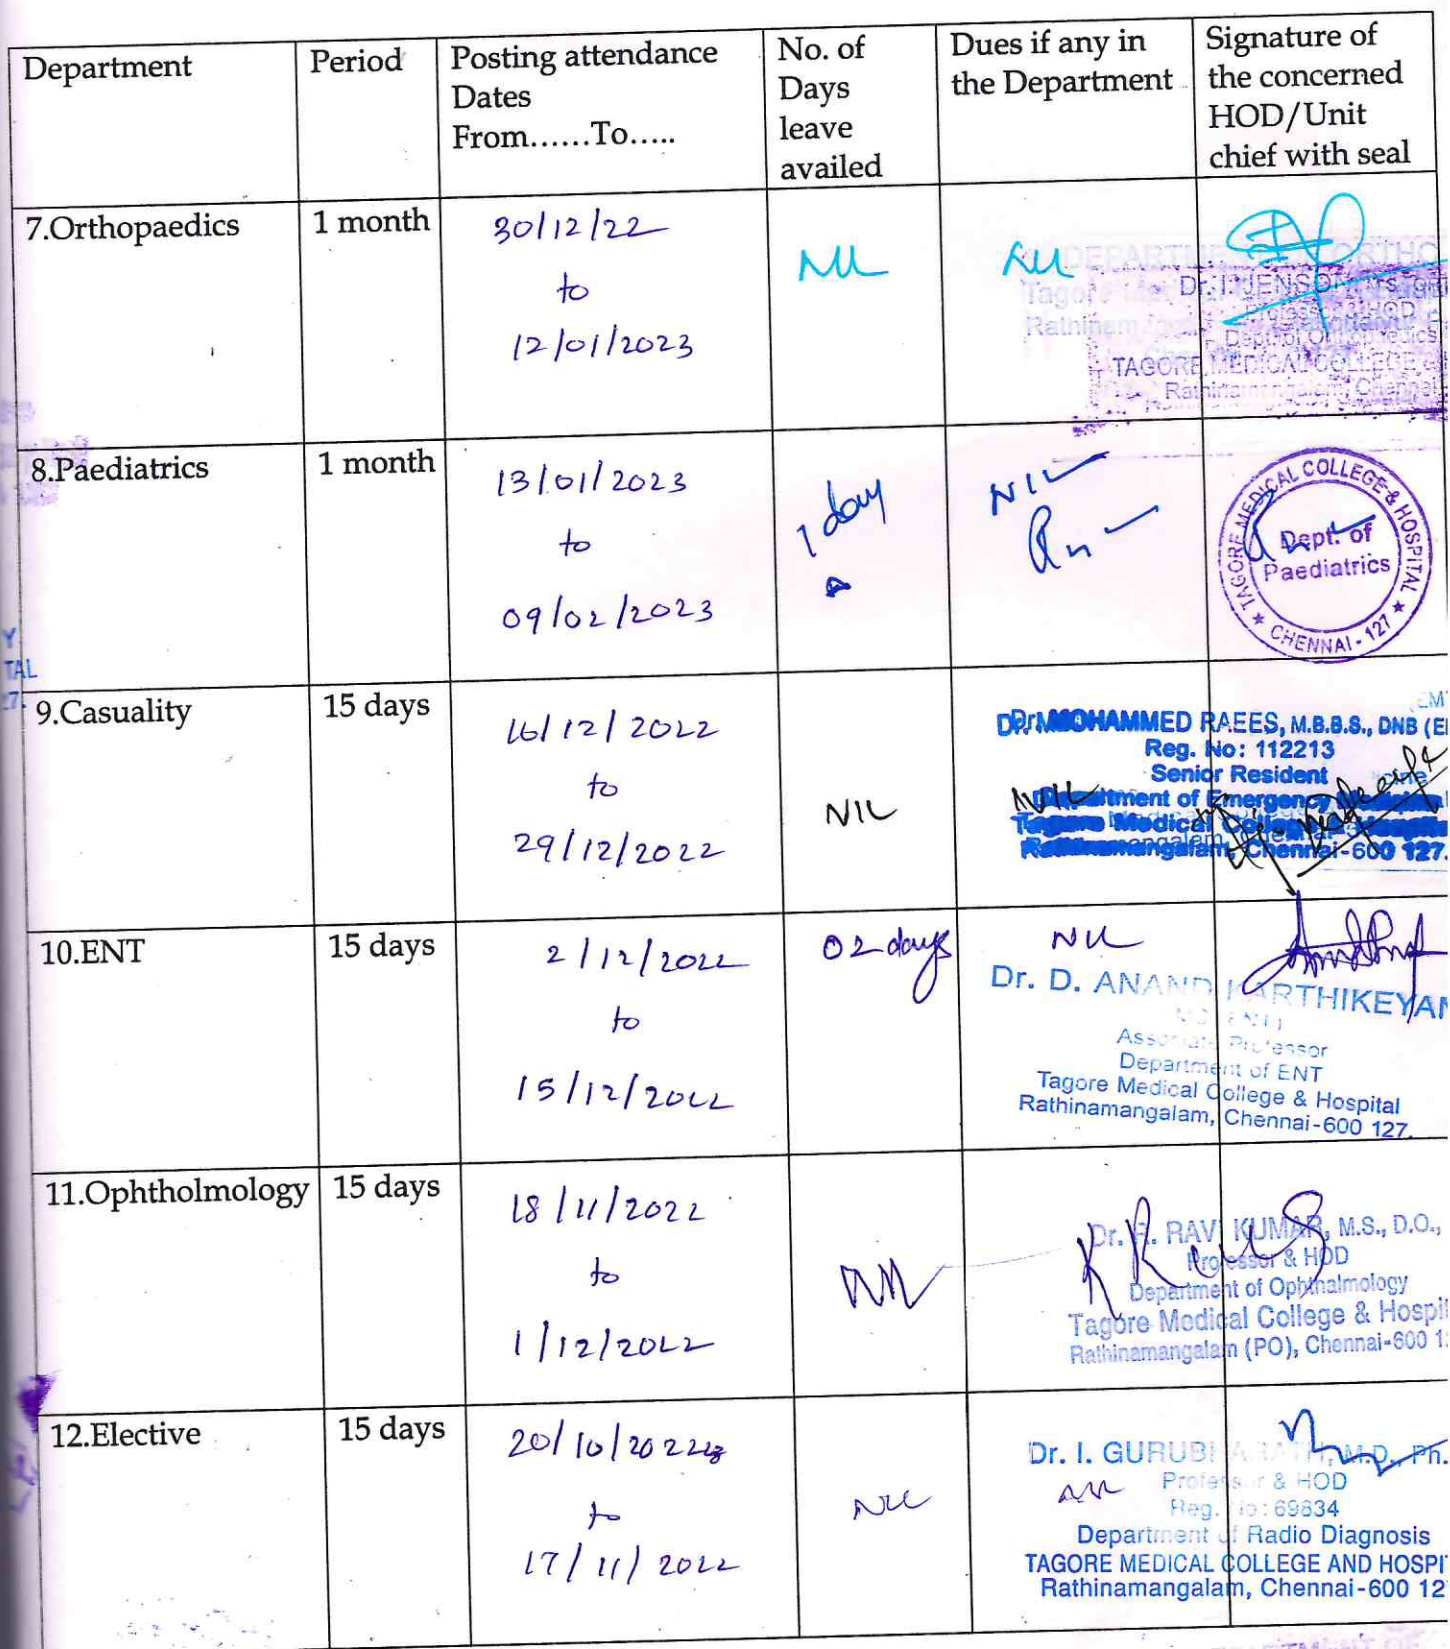 Department
Period
Posting attendance
Dates
From......To.....
No. of
Days
leave
availed
Dues if any in
the Department
Signature of
the concerned
HOD/Unit
chief with seal
7.Orthopaedics
1 month
30/12/22
to
12/01/2023
Nil
Nil
DEPARTMENT OF ORTHO
Tagore
Dr. I. JENSON
HOD
TAGORE MEDICAL COLLEGE
Rathinamangalam, Chennai
8.Paediatrics
1 month
13/01/2023
to
09/02/2023
1 day
NIL
TAGORE MEDICAL COLLEGE & HOSPITAL
Dept. of
Paediatrics
★ CHENNAI - 127 ★
Y
TAL
27.
9.Casuality
15 days
16/12/2022
to
29/12/2022
NIL
NIL
Dr. MOHAMMED RAEES, M.B.B.S., DNB (E
Reg. No: 112213
Senior Resident
Department of Emergency Medicine
Tagore Medical College & Hospital
Rathinamangalam, Chennai-600 127.
10.ENT
15 days
2/12/2022
to
15/12/2022
02 days
Nil
Dr. D. ANAND KARTHIKEYAN
Associate Professor
Department of ENT
Tagore Medical College & Hospital
Rathinamangalam, Chennai-600 127.
11.Ophtholmology
15 days
18/11/2022
to
1/12/2022
Nil
Dr. R. RAVI KUMAR, M.S., D.O.,
Professor & HOD
Department of Ophthalmology
Tagore Medical College & Hospi
Rathinamangalam (PO), Chennai-600 1
12.Elective
15 days
20/10/2022
to
17/11/2022
Nil
Nil
Dr. I. GURUBHARATH, M.D., Ph.
Professor & HOD
Reg. No: 69834
Department of Radio Diagnosis
TAGORE MEDICAL COLLEGE AND HOSPI
Rathinamangalam, Chennai-600 12